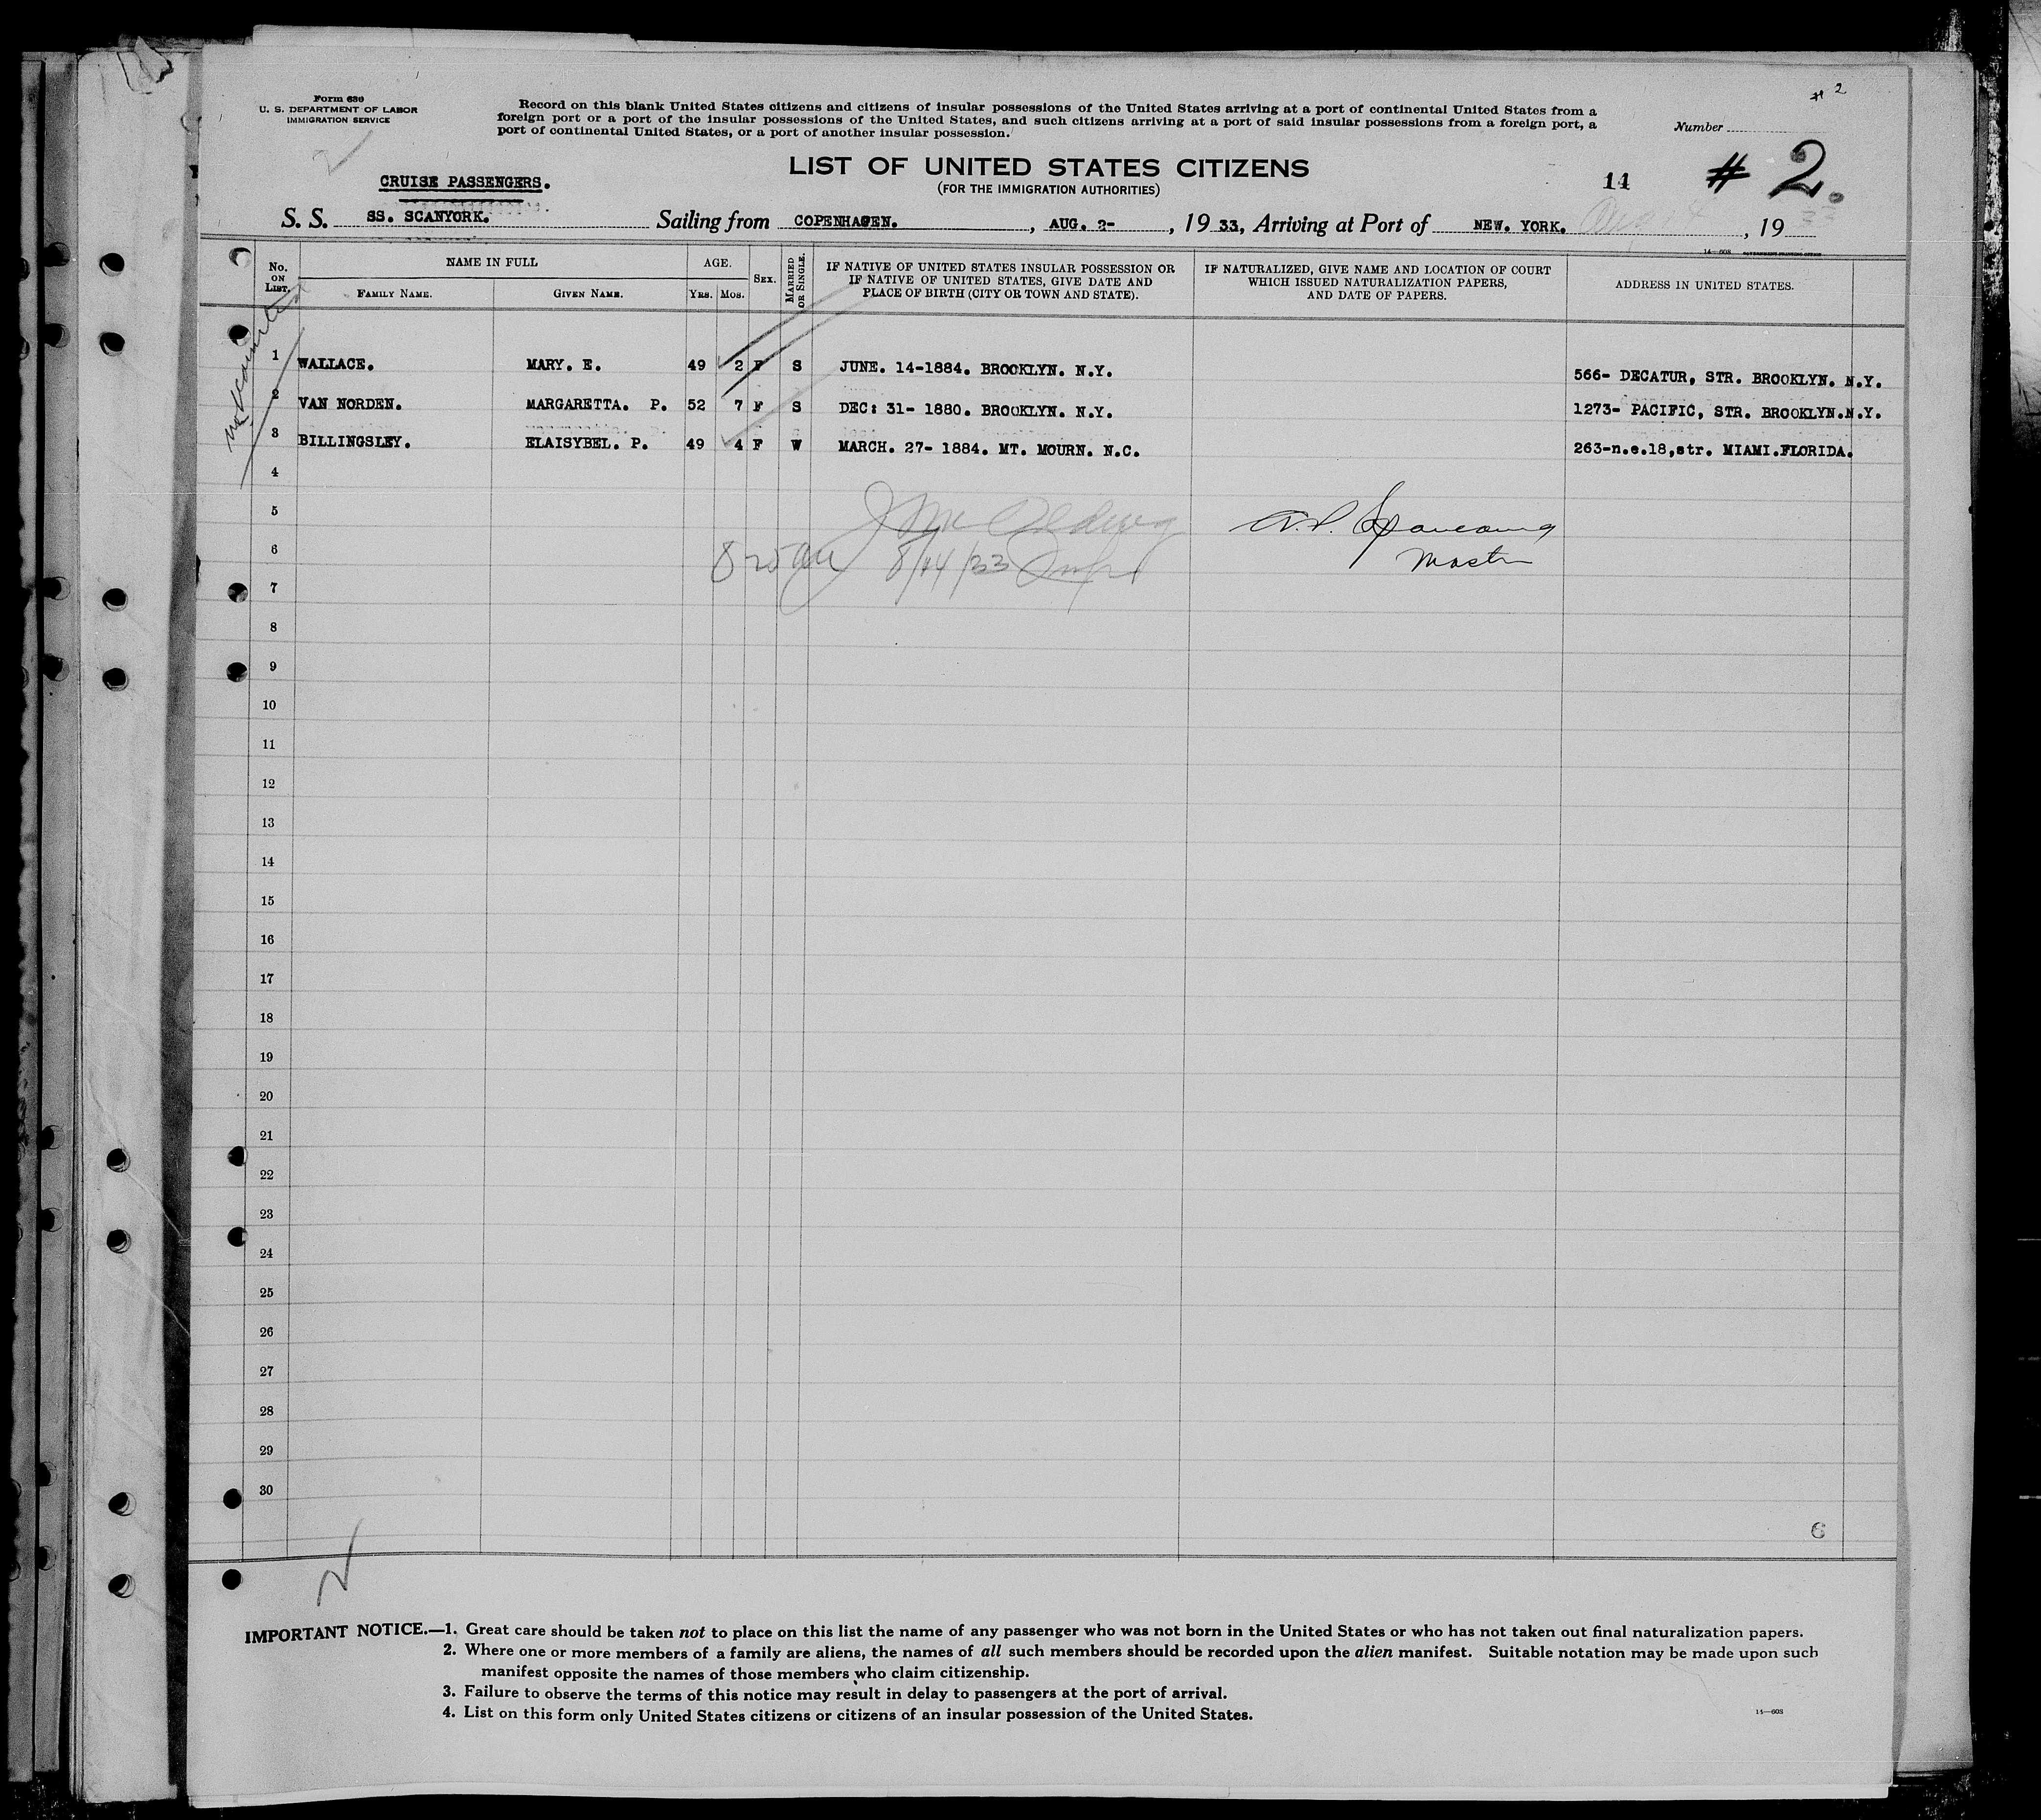 Form 630
U. S. DEPARTMENT OF LABOR
IMMIGRATION SERVICE
Record on this blank United States citizens and citizens of insular possessions of the United States arriving at a port of continental United States from a
foreign port or a port of the insular possessions of the United States, and such citizens arriving at a port of said insular possessions from a foreign port, a
port of continental United States, or a port of another insular possession.
# 2
Number
LIST OF UNITED STATES CITIZENS
(FOR THE IMMIGRATION AUTHORITIES)
CRUISE PASSENGERS.
14
# 2.
S. S. SS. SCANYORK. Sailing from COPENHAGEN. , AUG. 2- , 19 33, Arriving at Port of NEW. YORK. , 19 33
14—608 GOVERNMENT PRINTING OFFICE
No. ON LIST. NAME IN FULL FAMILY NAME. GIVEN NAME. AGE. YRS. MOS. SEX. MARRIED OR SINGLE. IF NATIVE OF UNITED STATES INSULAR POSSESSION OR IF NATIVE OF UNITED STATES, GIVE DATE AND PLACE OF BIRTH (CITY OR TOWN AND STATE). IF NATURALIZED, GIVE NAME AND LOCATION OF COURT WHICH ISSUED NATURALIZATION PAPERS, AND DATE OF PAPERS. ADDRESS IN UNITED STATES.
1 WALLACE. MARY. E. 49 2 F S JUNE. 14-1884. BROOKLYN. N.Y. 566- DECATUR, STR. BROOKLYN. N.Y.
2 VAN NORDEN. MARGARETTA. P. 52 7 F S DEC: 31- 1880. BROOKLYN. N.Y. 1273- PACIFIC, STR. BROOKLYN.N.Y.
3 BILLINGSLEY. ELAISYBEL. P. 49 4 F W MARCH. 27- 1884. MT. MOURN. N.C. 263-n.e.18,str. MIAMI.FLORIDA.
4
5
6 8/14/33 Master
7
8
9
10
11
12
13
14
15
16
17
18
19
20
21
22
23
24
25
26
27
28
29
30
6
IMPORTANT NOTICE.—1. Great care should be taken not to place on this list the name of any passenger who was not born in the United States or who has not taken out final naturalization papers.
2. Where one or more members of a family are aliens, the names of all such members should be recorded upon the alien manifest. Suitable notation may be made upon such
manifest opposite the names of those members who claim citizenship.
3. Failure to observe the terms of this notice may result in delay to passengers at the port of arrival.
4. List on this form only United States citizens or citizens of an insular possession of the United States.
14—608